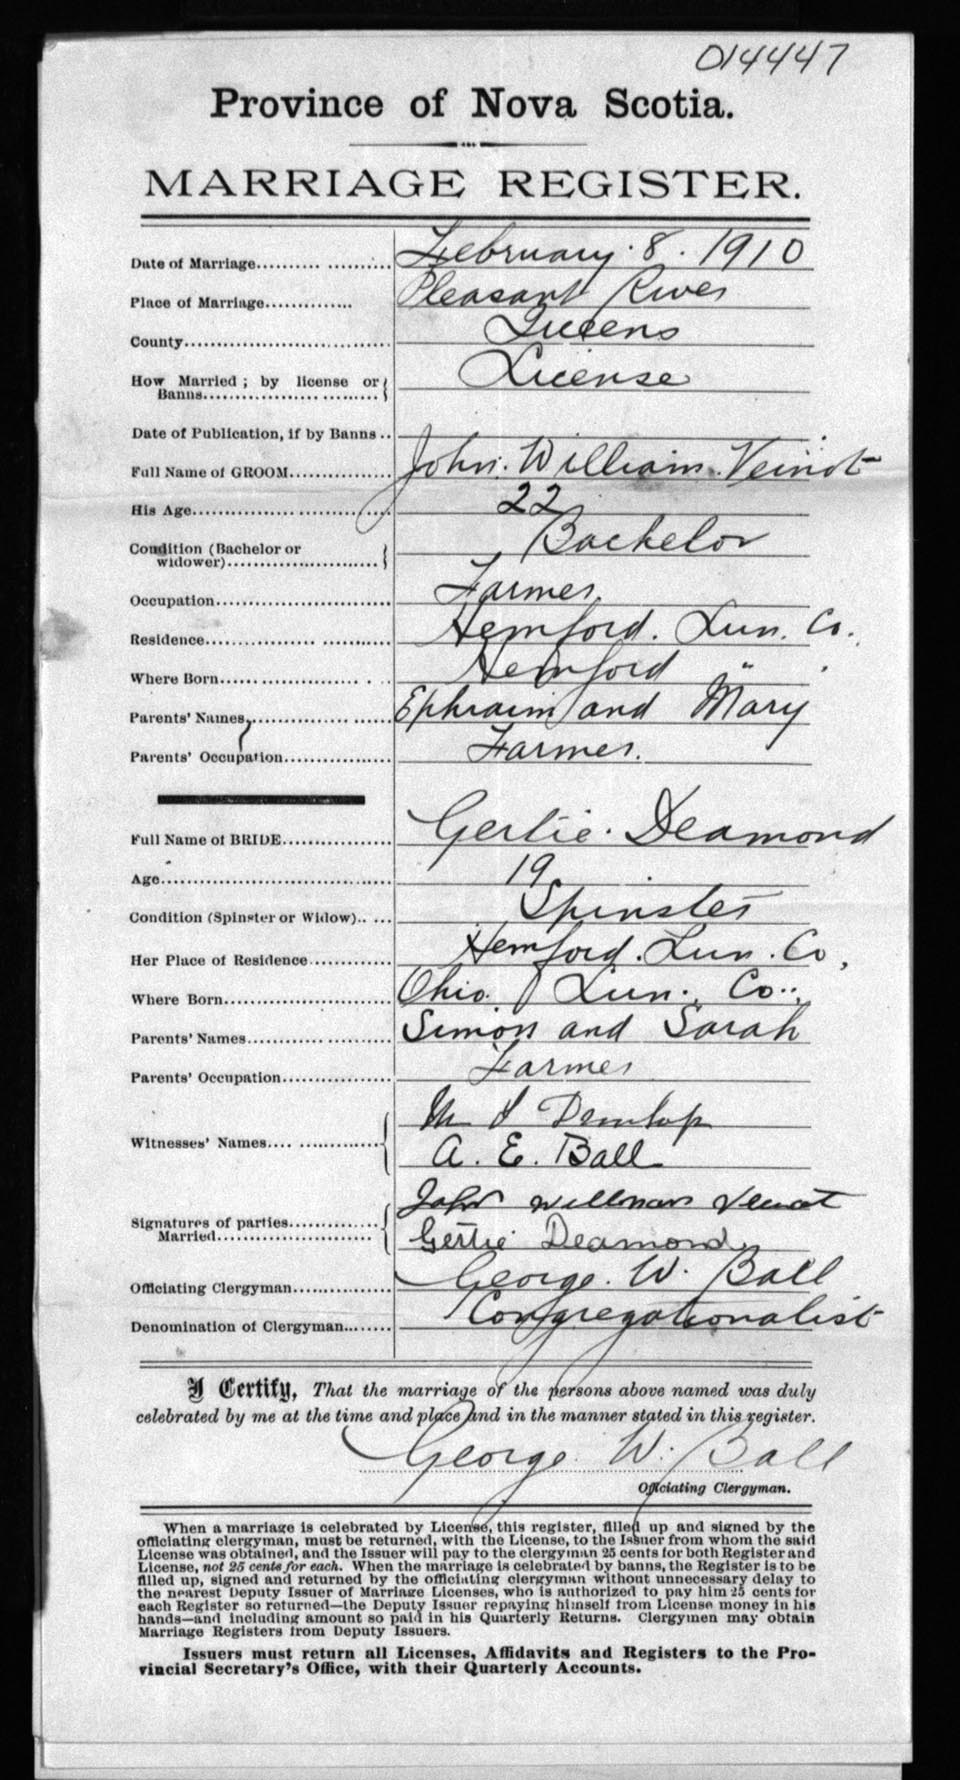 014447
Province of Nova Scotia.
MARRIAGE REGISTER.
Date of Marriage.................... February. 8. 1910
Place of Marriage.............. Pleasant River
County................................ Queens
How Married; by license or License
Banns..............................
Date of Publication, if by Banns..
Full Name of GROOM............... John. William. Veinot
His Age............................... 22
Condition (Bachelor or Bachelor
widower)..........................
Occupation........................... Farmer.
Residence............................ Hemford. Lun. Co.
Where Born........................ Hemford "
Parents' Names,.................... Ephraim and Mary
Parents' Occupation................ Farmer.
Full Name of BRIDE................ Gertie. Deamond
Age................................... 19
Condition (Spinster or Widow).. ... Spinster
Her Place of Residence............ Hemford. Lun. Co,
Where Born........................ Ohio. Lun. Co..
Parents' Names..................... Simon and Sarah
Parents' Occupation................ Farmer
M Dunlop
Witnesses' Names.... ..............
A. E. Ball
John William Veinot
Signatures of parties...............
Married.......................... Gertie Deamond
Officiating Clergyman.............. George. W. Ball
Denomination of Clergyman....... Congregationalist
I Certify, That the marriage of the persons above named was duly
celebrated by me at the time and place and in the manner stated in this register.
George. W. Ball
Officiating Clergyman.
When a marriage is celebrated by License, this register, filled up and signed by the
officiating clergyman, must be returned, with the License, to the Issuer from whom the said
License was obtained, and the Issuer will pay to the clergyman 25 cents for both Register and
License, not 25 cents for each. When the marriage is celebrated by banns, the Register is to be
filled up, signed and returned by the officiating clergyman without unnecessary delay to
the nearest Deputy Issuer of Marriage Licenses, who is authorized to pay him 25 cents for
each Register so returned—the Deputy Issuer repaying himself from License money in his
hands—and including amount so paid in his Quarterly Returns. Clergymen may obtain
Marriage Registers from Deputy Issuers.
Issuers must return all Licenses, Affidavits and Registers to the Pro-
vincial Secretary's Office, with their Quarterly Accounts.